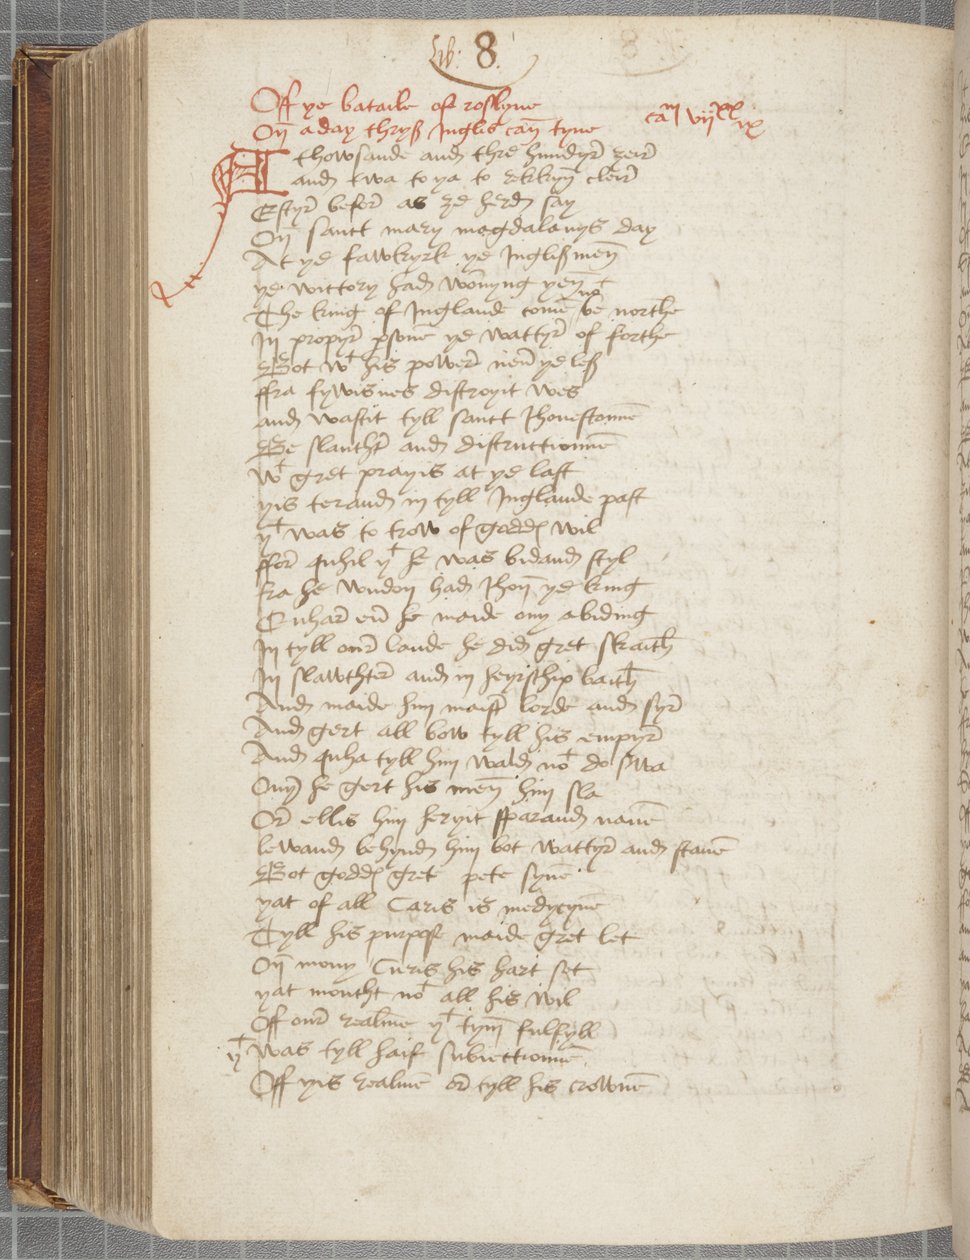 Lib: 8.
Off ye bataile of roslyne
Oñ a day thryß Inglis cañ tyne
cam vijxx ix
A thowsande and thre hundyr ȝeir
and twa to ya to rekkyñ cleir
Eftyr befor as ȝe herd say
Oñ sanct mary magdalanys day
At ye fawkyrk ye Inglißmeñ
ye wictory had wonnyng yeñ
The king of Inglande come not be northe
In propyr psone ye wattyr of forthe
Bot wt his power neuer ye leß
ffra fywisnes distroyit wes
and wastit tyll sanct Jhonestonne
Be slauchtir and distructionne
wt gret prayis at ye last
yis terand in tyll Inglande past
yt was to trow of goddis wil
ffor quhil yt he was bidand styl
fra he wndon had Jhoñ ye king
Quhar euer he maide ony abiding
In tyll our lande he did gret skaith
In slawchter and in heyrschip baith
And maide him maistir lorde and syr
And gert all bow tyll his empyr
And quha tyll him wald not do swa
Ony he gert his meñ him sla
Or ellis him heryit sparand nane
lewand behynd him bot wattyr and stane
Bot goddis gret pete syne
yat of all Caris is medycyne
Tyll his purpose maide gret let
Oñ mony Curis his hart set
yat moucht not all his wil
Off our realme yt tym fulfyll
yt was tyll haif subiectionne
Off yis realme or tyll his crowne